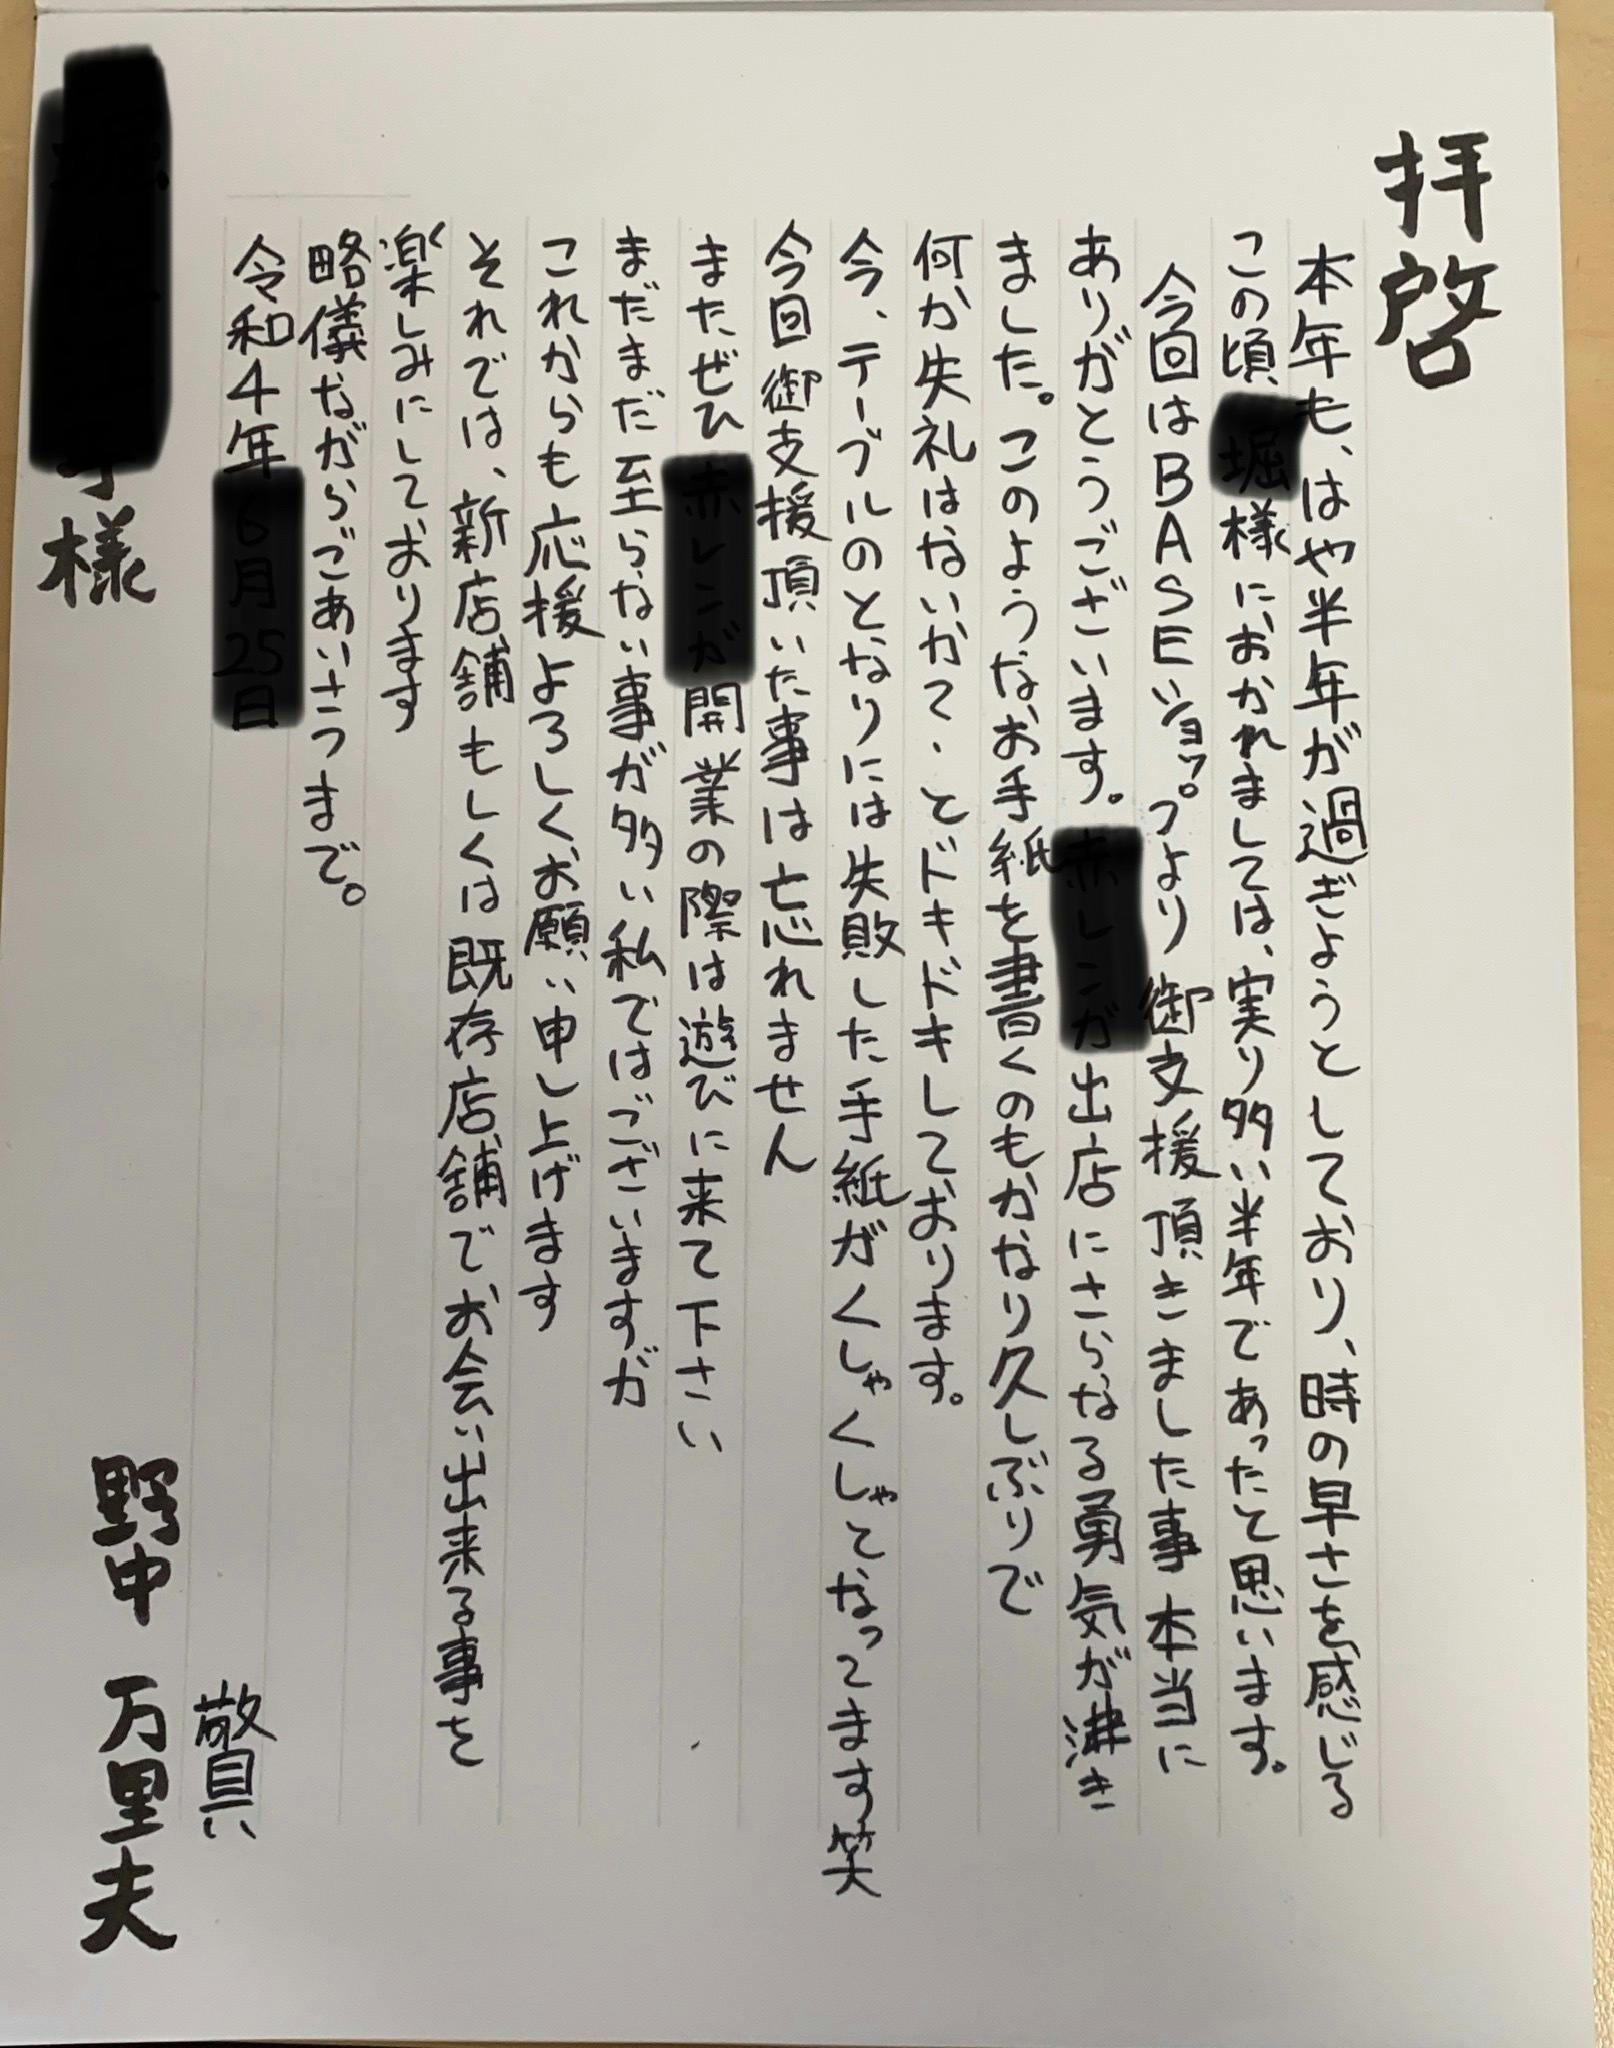 拝啓
本年も、はや半年が過ぎようとしており、時の早さを感じる
この頃 様におかれましては、実り多い半年であったと思います。
今回はBASEショップより御支援頂きました事本当に
ありがとうございます。 出店にさらなる勇気が沸き
ました。このようなお手紙を書くのもかなり久しぶりで
何か失礼はないかて・とドキドキしております。
今、テーブルのとなりには失敗した手紙がくしゃくしゃてなってます笑
今回御支援頂いた事は忘れません
またぜひ 開業の際は遊びに来て下さい
まだまだ至らない事が多い私ではございますが
これからも応援よろしくお願い申し上げます
それでは、新店舗もしくは既存店舗でお会い出来る事を
楽しみにしております
略儀ながらごあいさつまで。
令和4年
敬具
野中 万里夫
様